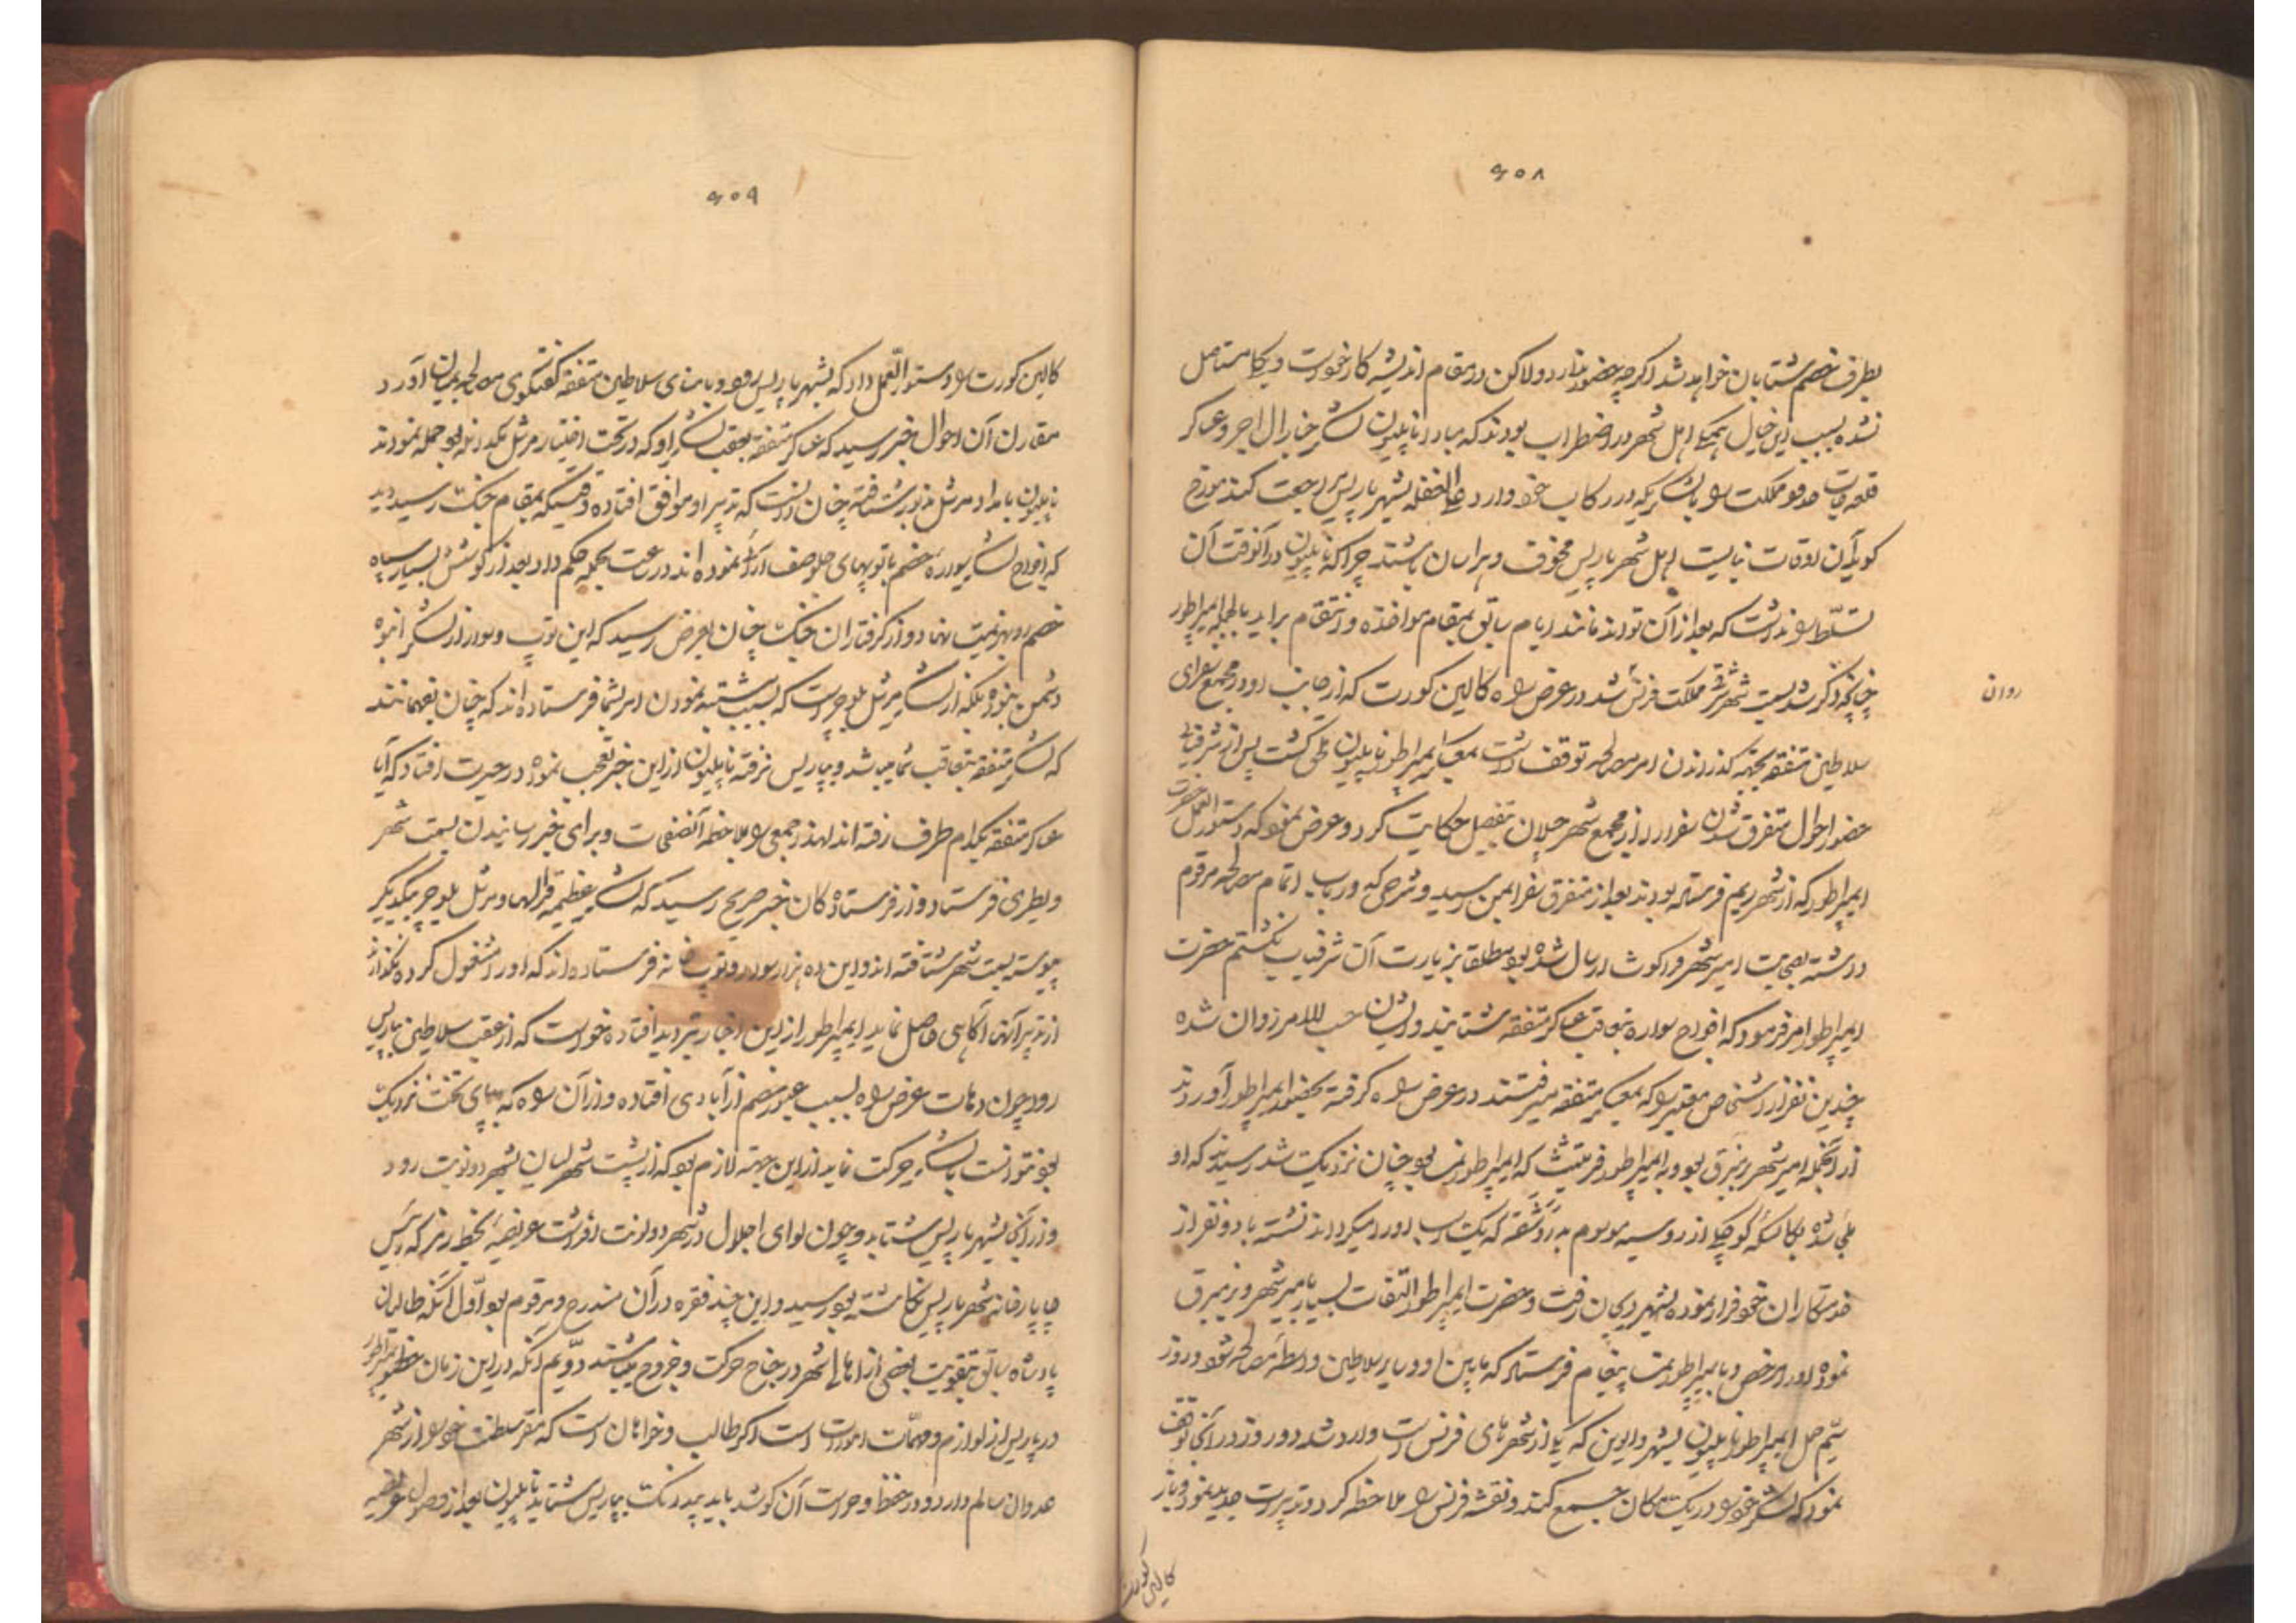 ۶۰۸
بطرف خصم شتابان خواهد شد اگرچه حضور ندارد و لاکن در مقام اندیشه کار خود است و یکجا مستاصل
نشده بسبب این خیال همکی اهل شهر در اضطراب بودند که مبادا ناپلیون لشکر جنارال و عساکر
قلعه جات مملکت را با لشکریکه در رکاب خود دارد علی الغفله بشهر پاریس رجعت کند مورخ
کوید آن اوقات نبایست اهل شهر پاریس مخوف و هراسان باشند چراکه ناپلیون در آنوقت آن
تسلط را نداشت که بعد از آن تواند مانند ایام سابق بمقام مواخذه و انتقام براید بالجمله ایمپراطور
چنانچه ذکر شد بسمت شهر شرقی مملکت فرنس شد در عرض راه کالین کورت که از جانب او در مجمع سفرای
روان
سلاطین متفقه بجهة گذراندن امر مصالحه توقف داشت بموکب ایمپراطور ناپلیون ملحق گشت پس از شرفیابی
حضور احوال متفرق شدن سفرا را از مجمع شهر بتفصیل حکایت کرد و عرض نمود که دستورالعمل حضرت
ایمپراطور که از شهر ریم فرستاده بودند بعد از متفرق سفرا بمن رسید و شرحی که در باب اتمام مصالحه مرقوم
داشته بصحابت امیر شهر ارسال شده بود مطلقا بزیارت آن شرفیاب نکشتم حضرت
ایمپراطور امر فرمود که افواج سواره بتعاقب عساکر متفقه شتابند و ایشان حسب الامر روان شده
چندین نفر از اشخاص معتبر را که بمعسکر متفقه میرفتند در عرض راه گرفته بحضور ایمپراطور آوردند
از آنجمله امیر شهر بود و به ایمپراطور که ایمپراطور نمسه بود چنان نزدیک شد رسیدند که او
ملجی شده بکالسکه کوچکی از روسیه موسوم به که یک اسب او را میکرداند نشسته با دو نفر از
خدمتکاران خود فرار نموده بشهر رفت و حضرت ایمپراطور التفات بسیار بامیر شهر
نموده او را مرخص و بایمپراطور نمسه پیغام فرستاد که مابین او و سایر سلاطین واسطه مصالحه شود و روز
سیم ایمپراطور ناپلیون بشهر که یکی از شهرهای فرنس است وارد شد دو روز در آنجا توقف
نمود که لشکر خود را در یک مکان جمع کند و نقشه فرنس را ملاحظه کرد و تدبیرات جدید نمود و باز
کالین کورت
۶۰۹
کالین کورت را دستورالعمل داد که بشهر پاریس رود و با امنای سلاطین متفقه گفتگوی مصالحه بمیان آورد
مقارن آن احوال خبر رسید که عساکر متفقه بعقب لشکر او که در تحت اختیار مرشل مکدانلد بود حمله نمودند
ناپلیون بامداد مرشل مذبور شتافته چنان دانست که تدبیر او موافق افتاده وقتیکه بمقام جنگ رسید دید
که افواج لشکر سواره خصم با توپهای جلو صف آرائی نموده اند در ساعت بحمله حکم داد بعد از کوشش بسیار سپاه
خصم رو بهزیمت نهاد و از گرفتاران جنگ چنان بعرض رسید که این توپ و سوار از لشکر انبوه
دشمن نبوده بلکه از لشکر مرشل بلوچر است که بسبب مشتبه نمودن امر بشما فرستاده اند که چنان بفهمانند
که لشکر متفقه بتعاقب شما میباشد و بپاریس نرفته ناپلیون از این خبر تعجب نموده در حیرت افتاد که آیا
عساکر متفقه بکدام طرف رفته اند لهذا جمعی را بملاحظه آنصفحات و برای خبر رسانیدن بسمت شهر
ویطری فرستاد و از فرستادگان خبر صریح رسید که لشکر عظیمه قرالها و مرشل بلوچر بیکدیگر
پیوسته بسمت شهر شتافته اند و این ده هزار سوار و توپخانه فرستاده اند که او را مشغول کرده نگذارند
از تدبیر آنها آگاهی حاصل نماید ایمپراطور از این اخبار بتردید افتاده خواست که از عقب سلاطین بپاریس
رود چون دهات عرض راه بسبب عبور خصم از آبادی افتاده و از آن راه که بپای تخت نزدیک
بود نتوانست با لشکر حرکت نماید از این جهة لازم بود که از پشت شهر بشهر دولونت رود
و از آنجا بشهر پاریس شتابد و چون لوای اجلال در شهر دولونت افراشت عریضه بخط رمز که رئیس
چاپارخانه شهر پاریس نگاشته بود رسید و این چند فقره در آن مندرج و مرقوم بود اول آنکه طالبان
پادشاه سابق بتقویت بعضی از اهالی شهر در جناح حرکت و خروج میباشند دویم آنکه در این زمان حضور ایمپراطور
در پاریس از لوازم و مهمات امور است اگر طالب و خواهان است که مقر سلطنت خود را از شر
عدوان سالم دارد و در حفظ و حراست آن کوشد باید بیدرنک بپاریس شتابد ناپلیون بعد از وصول عریضه